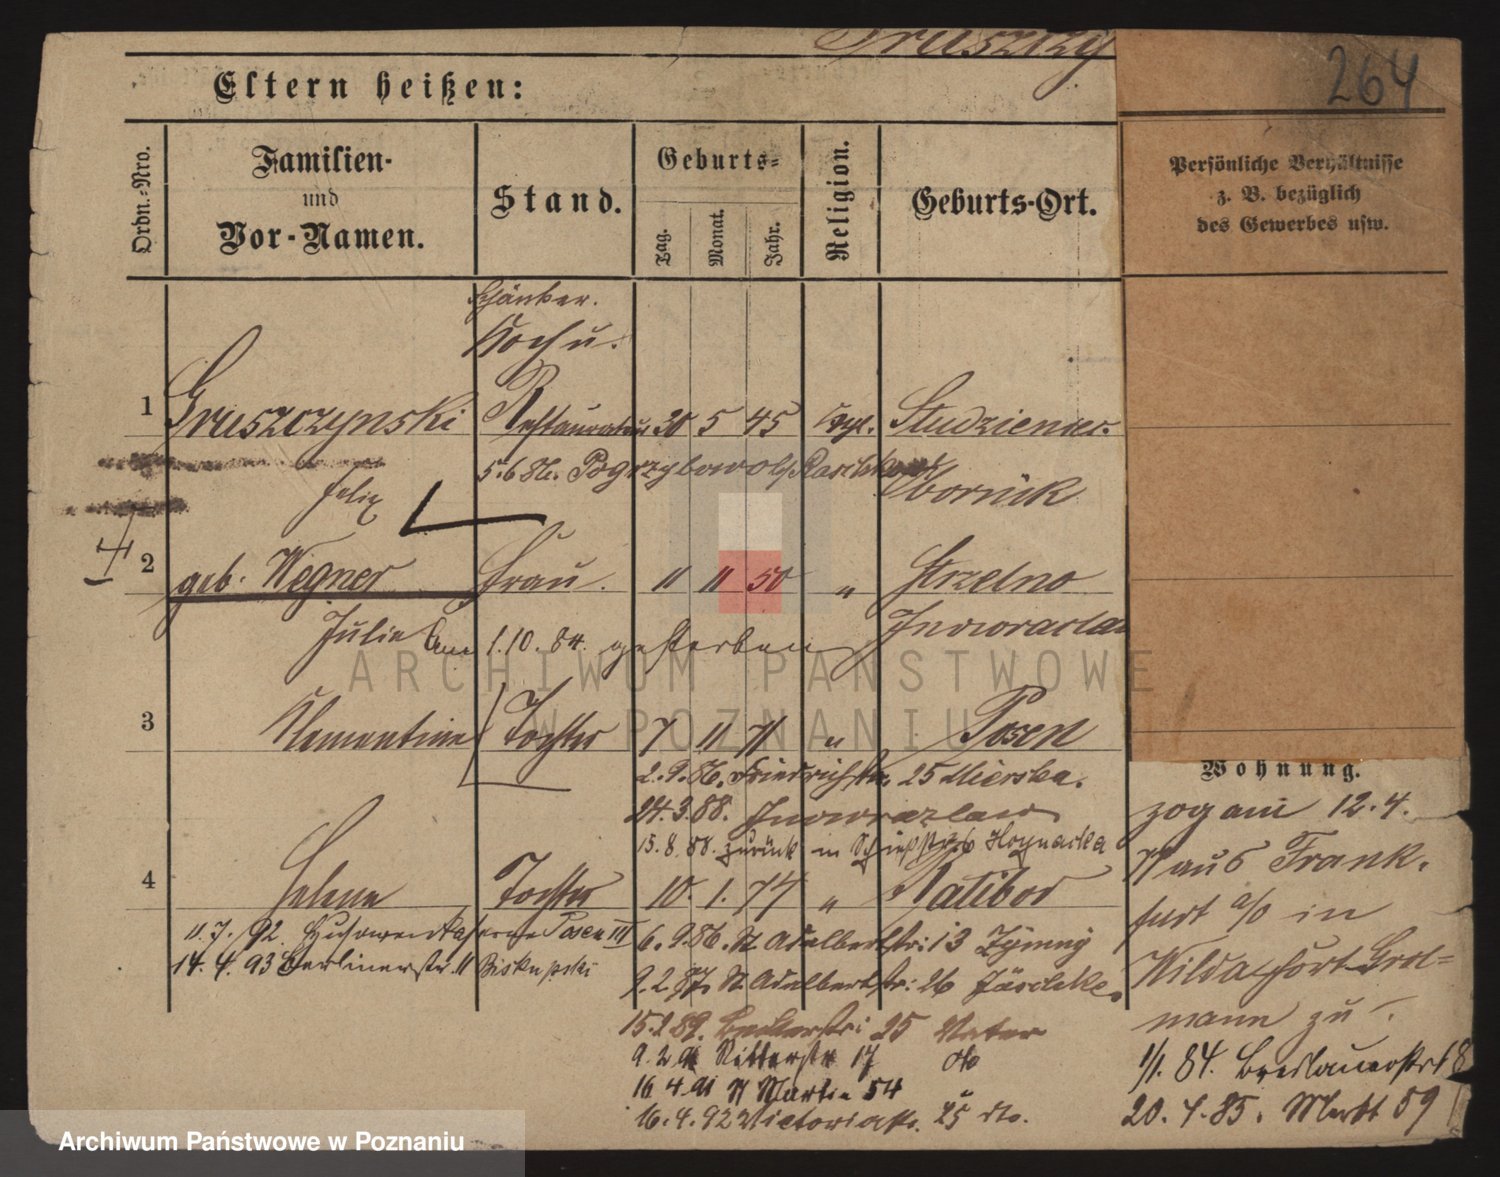 Gruszczy
264
Eltern heißen:
Ordn.-Nro.
Familien-
und
Vor-Namen.
Stand.
Geburts-
Tag.
Monat.
Jahr.
Religion.
Geburts-Ort.
Persönliche Verhältnisse
z. B. bezüglich
des Gewerbes usw.
Schänker.
Koch u.
1 Gruszczynski Restaurateur 20 5 45 Studzieniec.
5.6 86. Pogrzybowo b/Raschkow
Felix Obornick
4
2 geb. Wegner Frau. 11 11 50 " Strzelno
Julie am 1.10.84. gestorben Inowraclaw
3 Klementine Tochter 7 11 71 " Posen
2.9.86. Friedrichstr. 25 Mierska.
24.3.88. Inowrazlaw
15.8.88. zurück in Schießstr 6 Hoynacka
4 Helene Tochter 10. 1. 74 " Ratibor
11.7./92 Husarenkaserne Posen III
14.4.93 Berlinerstr. 11 Biskupski
6.9.86. St Adalbertstr: 13 Zymny
9.2.87. St Adalbertstr: 26 Jäschke
15.2.89. Bäckerstr: 25 Vater
9.2.91 Ritterstr 17 dto
16 4 91 St Martin 54 "
16.4.92 Victoriastr. 25 dto.
Wohnung.
zog am 12.4.
77 aus Frank-
furt a/o in
Wilda Fort Grol=
mann zu.
1/1. 84. Breslauerstr 18
20.4.85. Markt 59
ARCHIWUM PAŃSTWOWE
W POZNANIU
Archiwum Państwowe w Poznaniu